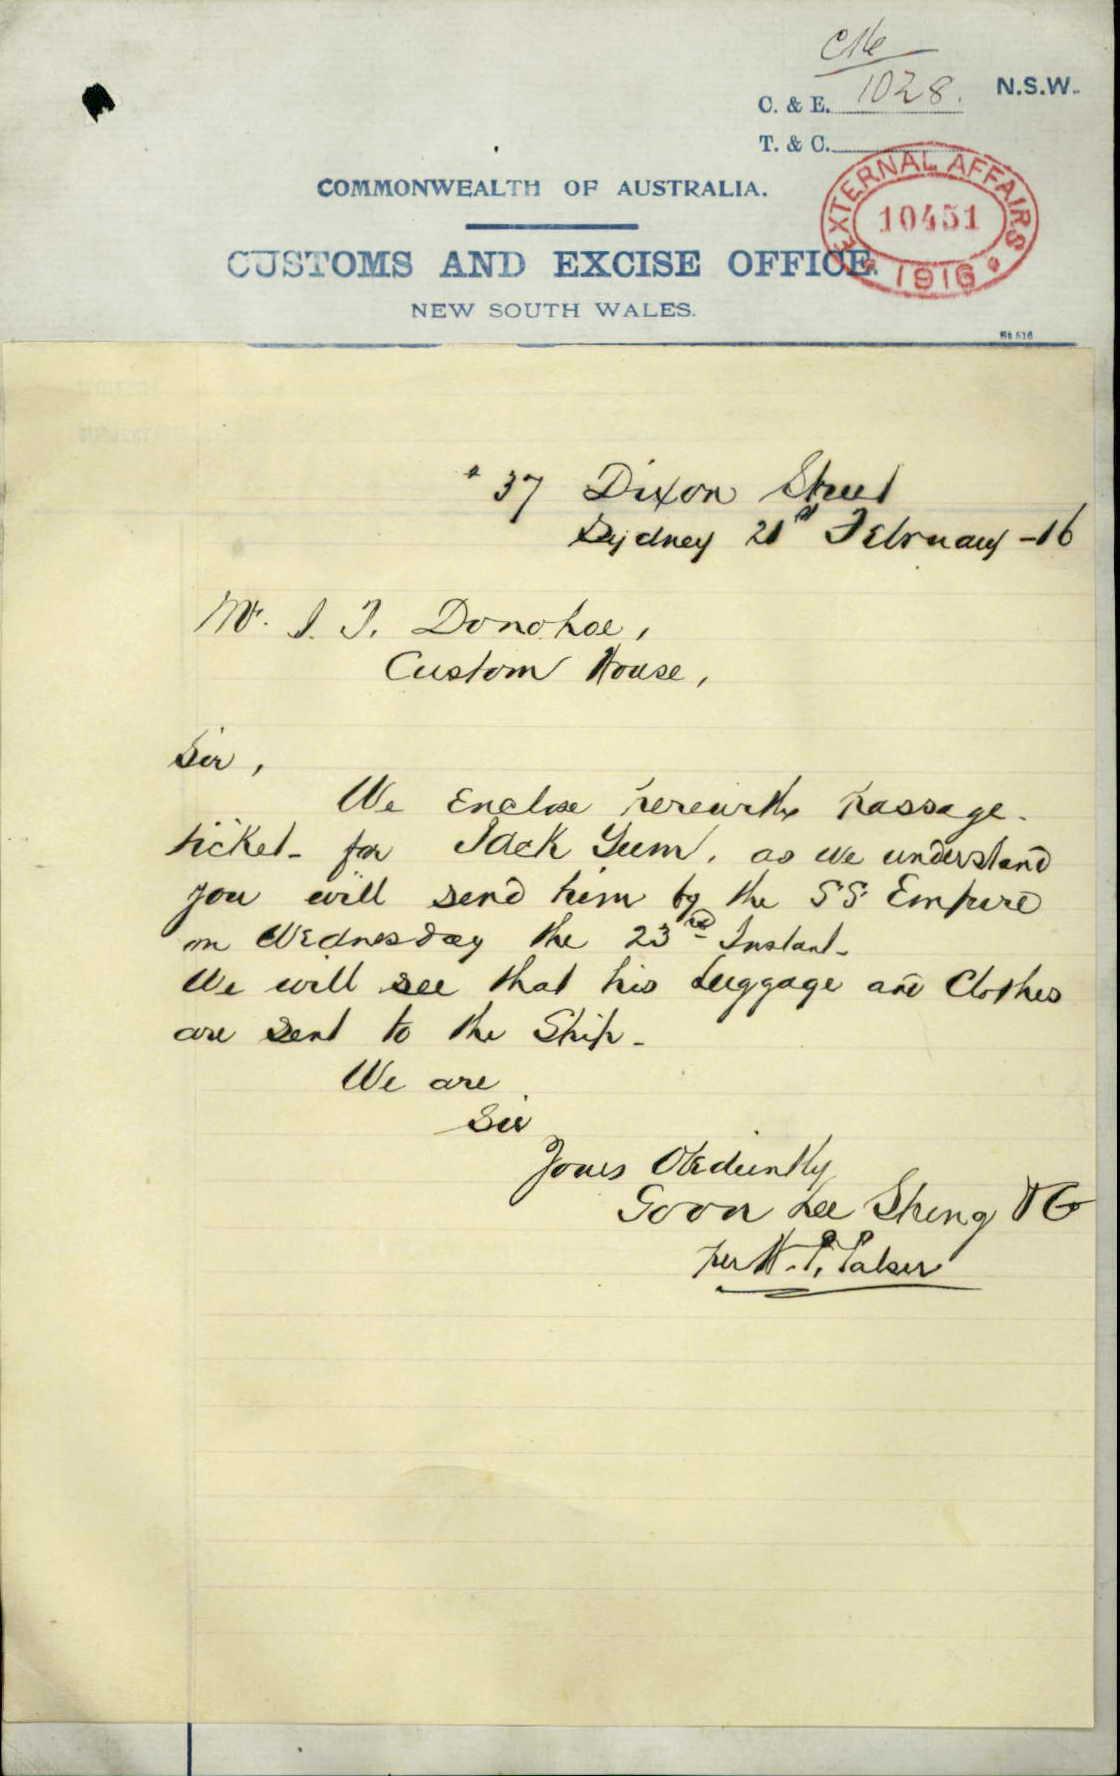 C16
C. & E. 1028. N.S.W.
T. & C.
COMMONWEALTH OF AUSTRALIA.
EXTERNAL AFFAIRS
10451
1916
CUSTOMS AND EXCISE OFFICE.
NEW SOUTH WALES.
37 Dixon Street
Sydney 21st February -16
Mr. J. T. Donohoe,
Custom House,
Sir,
We Enclose herewith Passage
ticket for Jack Yum, as we understand
you will send him by the SS Empire
on Wednesday the 23rd Instant.
We will see that his Luggage and Clothes
are sent to the Ship.
We are
Sir
Yours Obediently
Goon Lee Shing & Co
per W. P.